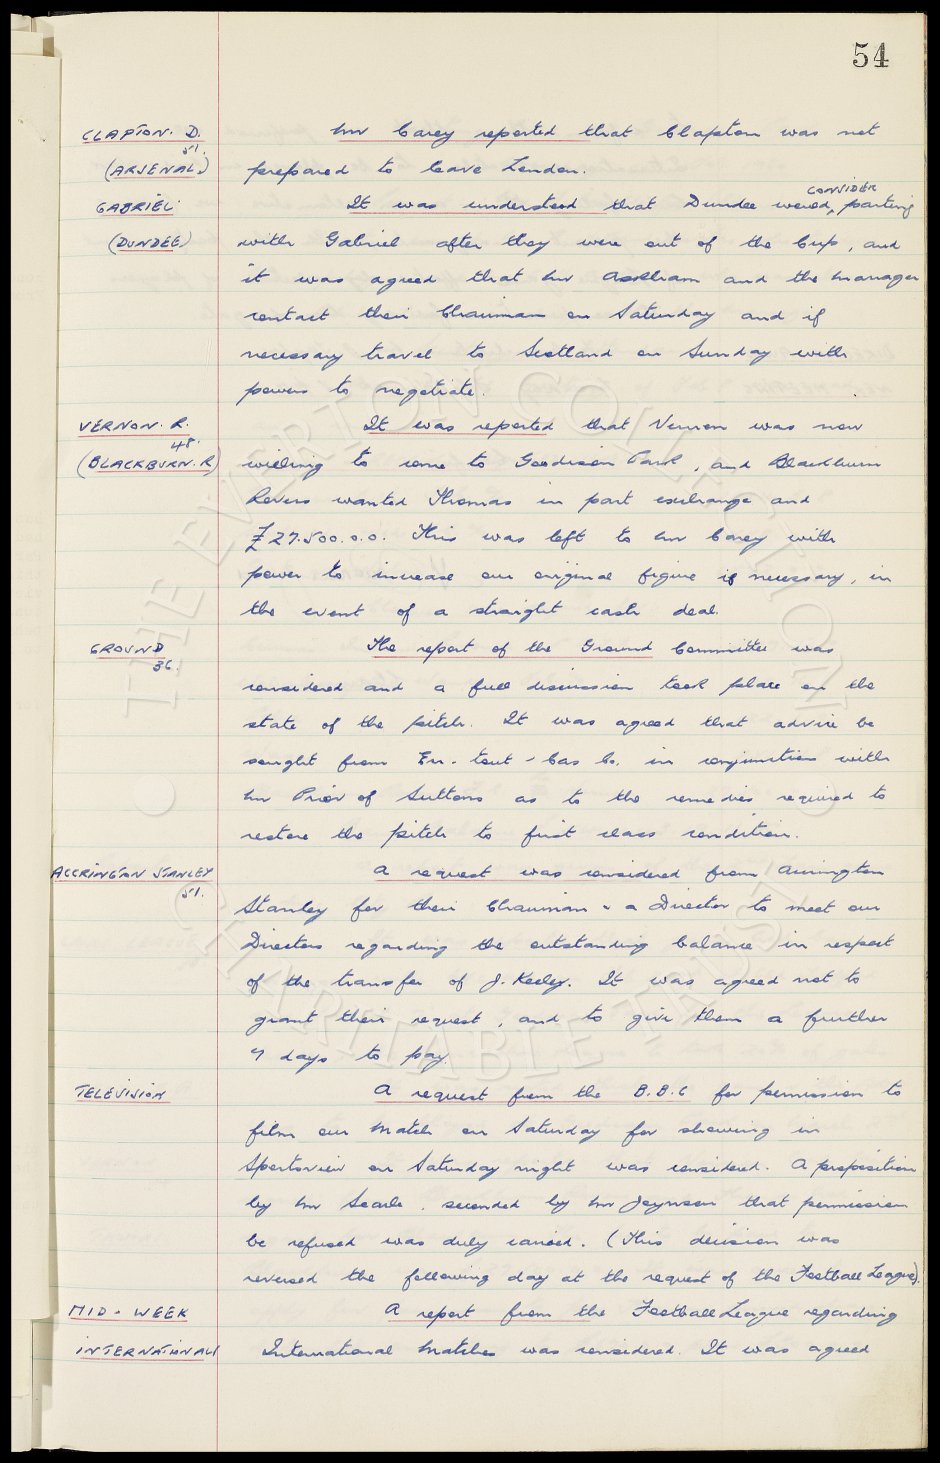 54
CLAPTON. D. Mr Carey reported that Clapton was not
51.
(ARSENAL) prepared to leave London.
CONSIDER
GABRIEL. It was understood that Dundee would parting
(DUNDEE) with Gabriel after they were out of the Cup, and
it was agreed that Mr Askham and the manager
contact their Chairman on Saturday and if
necessary travel to Scotland on Sunday with
powers to negotiate.
VERNON. R. It was reported that Vernon was now
48.
(BLACKBURN. R) willing to come to Goodison Park, and Blackburn
Rovers wanted Thomas in part exchange and
£27.500.0.0. This was left to Mr Carey with
power to increase our original figure if necessary, in
the event of a straight cash deal.
GROUND The report of the Ground Committee was
36.
considered and a full discussion took place on the
state of the pitch. It was agreed that advice be
sought from En-tout-Cas Co. in conjunction with
Mr Prior of Suttons as to the remedies required to
restore the pitch to first class condition.
ACCRINGTON STANLEY A request was considered from Accrington
51.
Stanley for their Chairman & a Director to meet our
Directors regarding the outstanding balance in respect
of the transfer of J. Keeley. It was agreed not to
grant their request, and to give them a further
7 days to pay.
TELEVISION A request from the B.B.C for permission to
film our match on Saturday for showing in
Sportsview on Saturday night was considered. A proposition
by Mr Searle, seconded by Mr Joynson that permission
be refused was duly carried. (This decision was
reversed the following day at the request of the Football League).
MID-WEEK A report from the Football League regarding
INTERNATIONALS International Matches was considered. It was agreed
© THE EVERTON COLLECTION
CHARITABLE TRUST